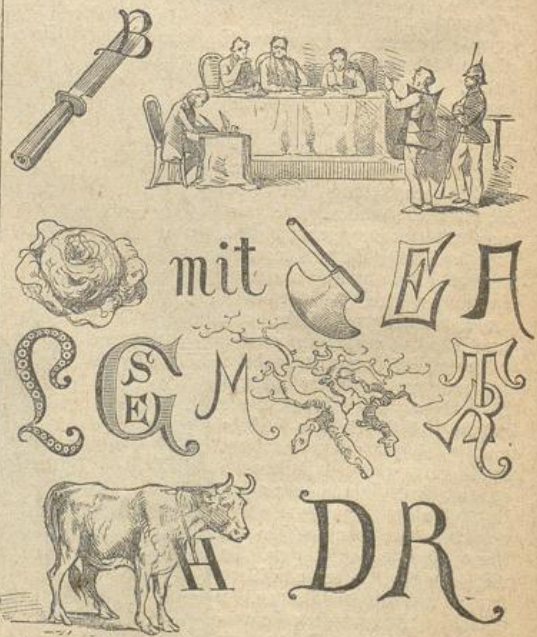 B
mit E A
L G S E M T R
H D R